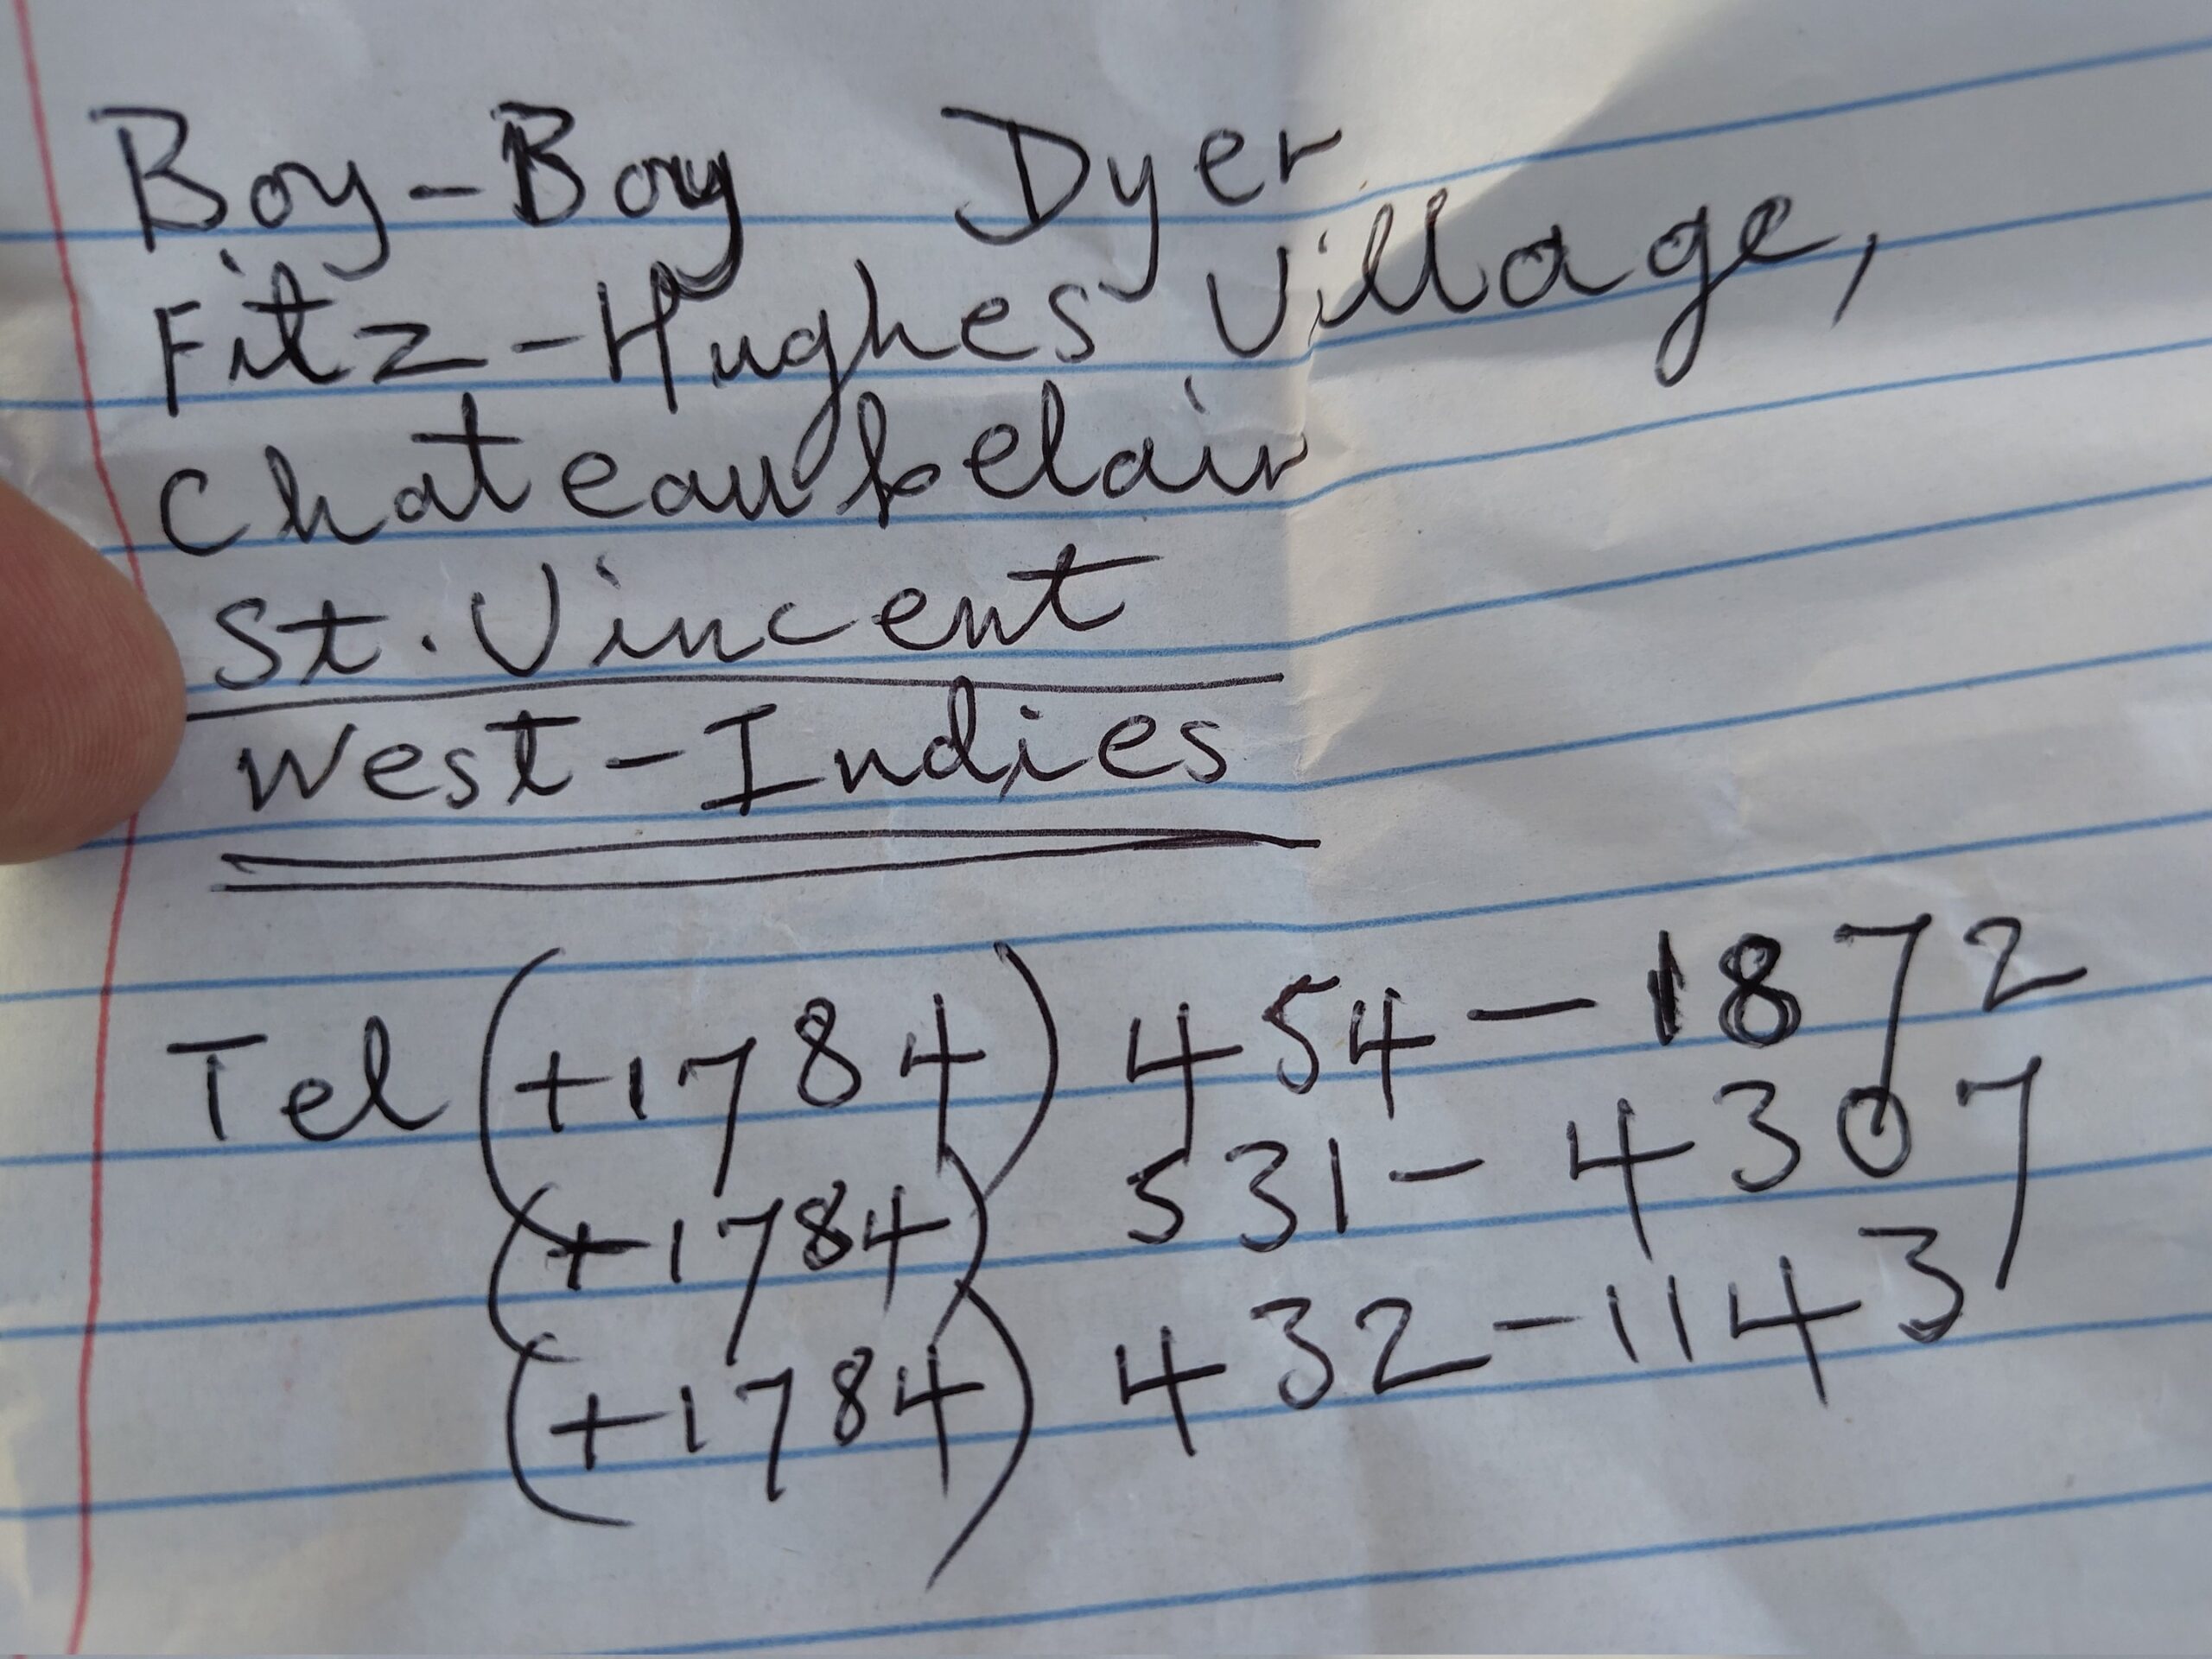 Boy-Boy Dyer
Fitz-Hughes Village,
Chateaubelair
St. Vincent
West-Indies
Tel (+1784) 454-1872
(+1784) 531-4307
(+1784) 432-1143